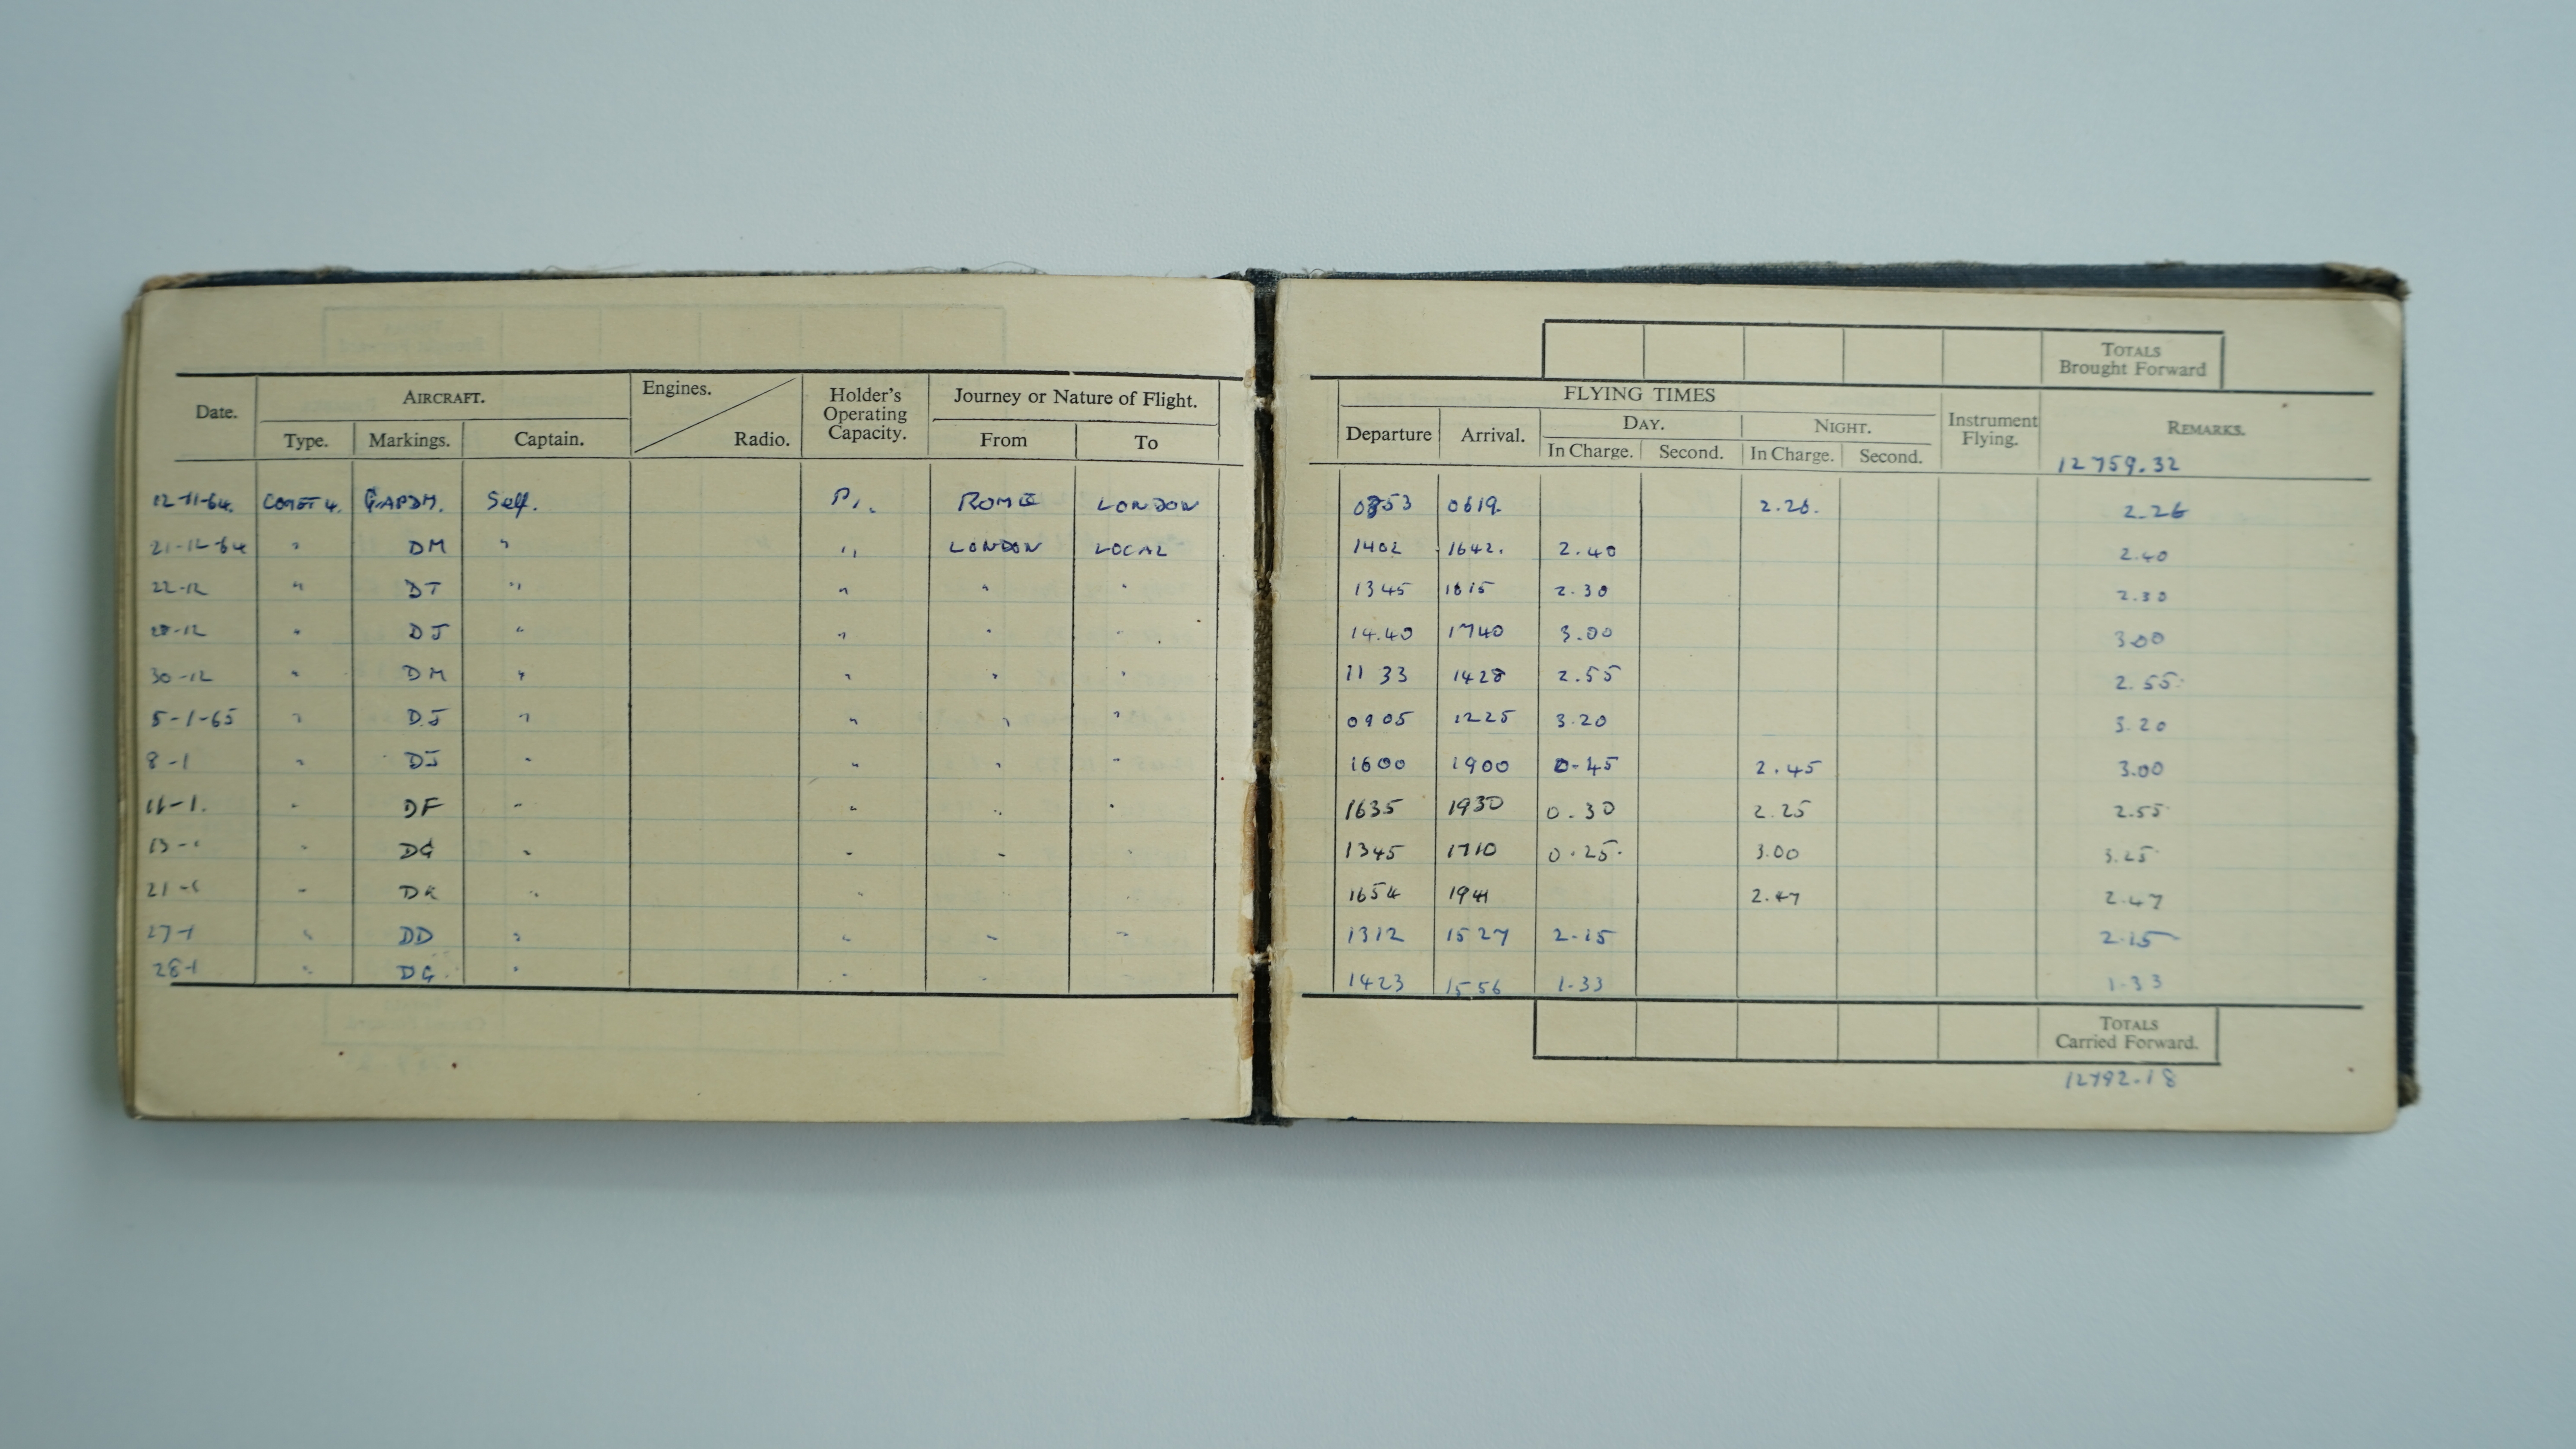 TOTALS
Brought Forward
Date. AIRCRAFT. Engines. Radio. Holder's Operating Capacity. Journey or Nature of Flight. FLYING TIMES Instrument Flying. REMARKS.
Type. Markings. Captain. From To Departure Arrival. DAY. NIGHT.
In Charge. Second. In Charge. Second. 12759.32
12-11-64. COMET 4. G.APDM. Self. P1. ROME LONDON 0353 0619 2.26. 2.26
21-12-64 " DM " " LONDON LOCAL 1402 1642. 2.40 2.40
22-12 " DT " " " " 1345 1615 2.30 2.30
28-12 " DJ " " " " 14.40 1740 3.00 3.00
30-12 " DM " " " " 1133 1428 2.55 2.55
5-1-65 " DJ " " " " 0905 1225 3.20 3.20
8-1 " DJ " " " " 1600 1900 0-45 2.45 3.00
11-1. " DF " " " " 1635 1930 0.30 2.25 2.55
13-1 " DG " " " " 1345 1710 0.25. 3.00 3.25
21-1 " DK " " " " 1654 1941 2.47 2.47
27-1 " DD " " " " 1312 1527 2-15 2.15
28-1 " DG " " " " 1423 1556 1-33 1-33
TOTALS
Carried Forward.
12792.18